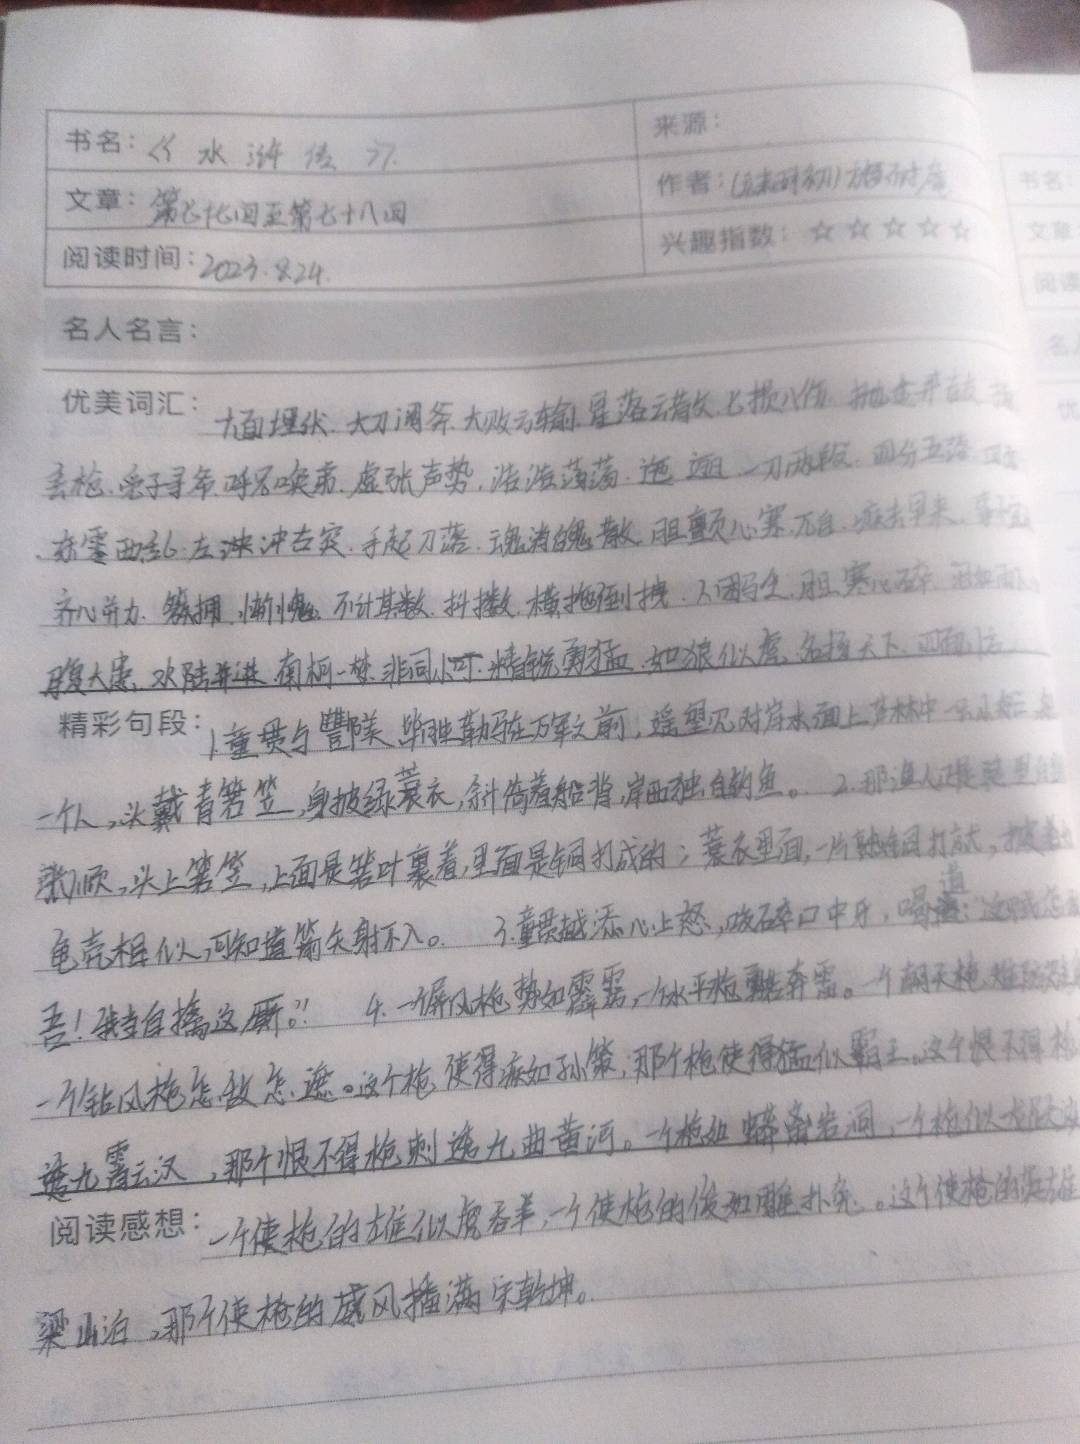 书名：《水浒传》
来源：
文章：第七十七回至第七十八回
作者：(元末明初)施耐庵
阅读时间：2023.8.24.
兴趣指数：☆☆☆☆☆
名人名言：
优美词汇：十面埋伏、大刀阔斧、大败亏输、星落云散、七损八伤、抛
丢枪、觅子寻爷、呼兄唤弟、虚张声势、浩浩荡荡、迤逦、一刀两段、四分五落
东零西乱、左冲右突、手起刀落、魂消魄散、胆颤心寒、兀自
齐心并力、簇拥、惭愧、不计其数、抖擞、横拖倒拽、人困马乏、胆寒心碎
大患、水陆并进、南柯一梦、非同小可、精锐勇猛、如狼似虎、名扬天下、四面
精彩句段：1.童贯与酆美、毕胜勒马在万军之前，遥望见对岸水面上芦林中一只小船
一个人，头戴青箬笠，身披绿蓑衣，斜倚着船背，岸西独自钓鱼。 2.那渔人正是
张顺，头上箬笠，上面是箬叶裹着，里面是铜打成的；蓑衣里面，一片熟铜打就，披着
龟壳相似，可知道箭矢射不入。 3.童贯越添心上怒，咬碎口中牙，喝道：
吾！我当自擒这厮。” 4.一个屏风枪势如霹雳，一个水平枪勇如奔雷。一个朝天枪难防
一个钻风枪怎敌怎遮。这个枪使得疾如孙策，那个枪使得猛似霸王。这个恨不得枪
透九霄云汉，那个恨不得枪刺透九曲黄河。一个枪如蟒离岩洞，一个枪似龙跃
阅读感想：一个使枪的雄似虎吞羊，一个使枪的俊如雕扑兔。这个使枪的英雄
梁山泊，那个使枪的威风播满宋乾坤。